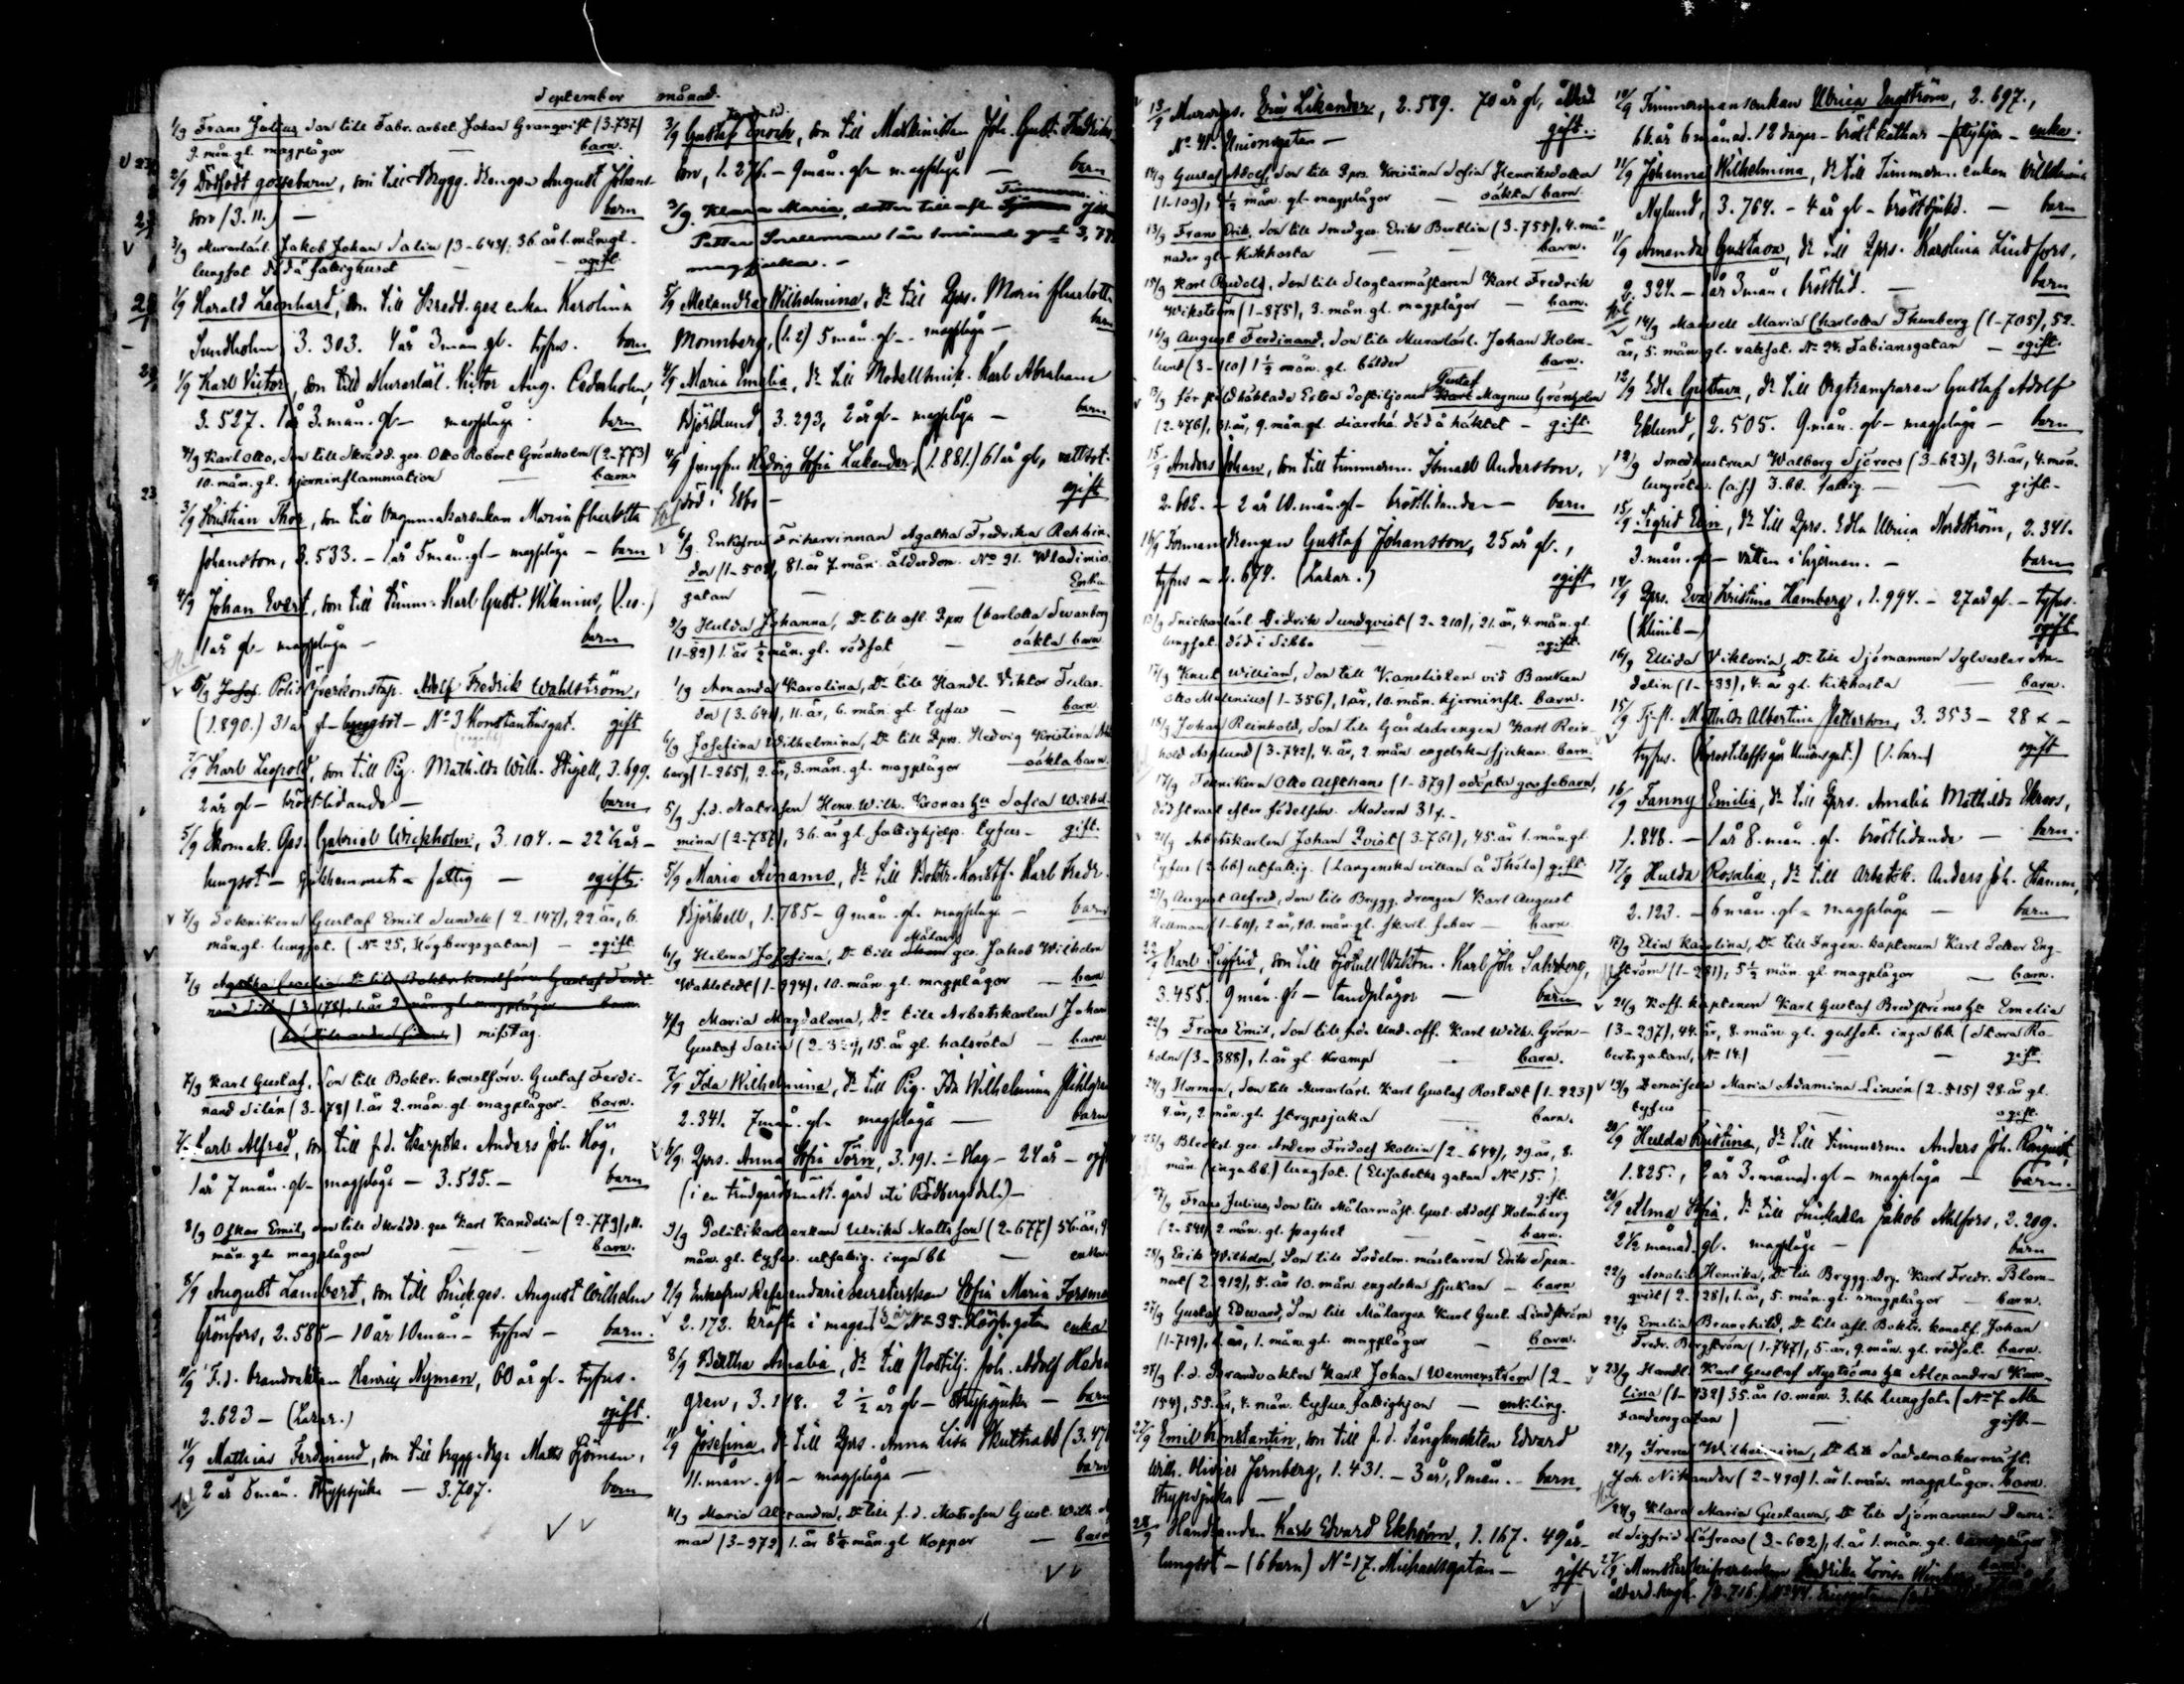 September månad.
1/9 Frans Julius son till Fabr. arbet. Johan Granqvist (3-737)
9. mån. gl. magplågor — barn.
2/9 Dödfödt gossebarn, son till Brygg. drengen August Johans-
son (3. 11.) — barn
3/9 Murarlärl. Jakob Johan Salin (3-643), 36. år 1. mån gl.
lungsot död å fattighuset — ogift.
1/9 Harald Leonhard, son till Skredd. ges. enkan Karolina
Sundholm, 3. 303. 4 år 3 mån gl. tyfus. barn
1/9 Karl Victor, son till Murarlärl. Victor Aug. Cederholm,
3. 527. 1 år 3. mån. gl — magplåga barn
4/9 Karl Otto, son till Skrädd. ges. Otto Robert Grönholm (2-773)
10. mån. gl. hjerninflammation — barn
3/9 Kristian Thor, son till enkan Maria Charlotta
Johansson, 3. 533. — 1 år 5 mån. gl — magplåga — barn
4/9 Johan Evert, son till Timm. Karl Gust. Wilenius,
1 år gl — magplåga — barn
5/9 Polisöfverkonstap. Adolf Fredrik Wahlström,
(1. 890.) 31 år gl — lungsot — No 3 Konstantinsgat. gift
7/9 Karl Leopold, son till Pig. Mathilda Wilh. Stigell, 3. 699.
2 år gl — bröstlidande — barn
5/9 Skomak. Ges. Gabriel Wickholm, 3. 104. — 22 ½ år —
lungsot — fattig — ogift.
7/9 Teknikern Gustaf Emil Sundell (2-147), 22. år, 6.
mån. gl. lungsot. (No 25, Högbergsgatan) — ogift.
7/9 Agatha Cecilia Dr till Boktr. konstförv. Gustaf Ferdi-
nand Silén (3-178) 1. år 2. mån gl. magplågor barn
misstag.
7/9 Karl Gustaf, Son till Boktr. konstförv. Gustaf Ferdi-
nand Silén (3-178) 1. år 2. mån. gl. magplågor — barn.
7/9 Karl Alfred, son till f. d. Skarpsk. Anders Joh. Hög,
1 år 7 mån. gl — magplåga — 3. 525. — barn
8/9 Oskar Emil, son till Skrädd. ges. Karl Kandelin (2-779), 11.
mån. gl. magplågor — barn.
8/9 August Lambert, son till Snick. ges. August Wilhelm
Grönfors, 2. 585 — 10 år 10 mån — tyfus — barn.
10/9 F. d. brandvakten Henric Nyman, 60 år gl — tyfus.
2. 623 — (Lazar.) gift.
11/9 Mathias Ferdinand, son till brygg. drg. Matts Sjöman,
2 år 5 mån. Strypsjuka — 3. 707. barn
3/9 Gustaf Enoch, son till Maskinisten Joh. Gust. Fredriks-
son, 1. 276. — 9 mån. gl — magplåga — barn
3/9. Klara Maria, dotter till afl. Timmerm.
Petter Söderman 1 år 1 månad gl
magsjuka. —
5/9 Alexandra Wilhelmina, dr till Qprs. Maria Charlotta
Monnberg, (1. 2) 5 mån. gl — magplåga — barn
4/9 Maria Emelia, dr till Modellsnick. Karl Abraham
Björklund, 3. 293, 2 år gl — magplåga — barn
4/9 Jungfru Hedvig Sofia Lukander, (1. 881.) 61 år gl, vattsot.
död i Esbo — ogift
6/9. Enkefru Friherrinnan Agatha Fredrika Rehbin-
der (1-509), 81. år 7. mån. ålderdom. No 21. Wladimirs-
gatan — Enka
9/9 Hulda Johanna, Dr till afl. Qprs Charlotta Swanberg
(1-82) 1. år ½ mån. gl. rödsot — oäkta barn.
1/9 Amanda Karolina, Dr till Handl. Viktor Selan-
der (3. 641), 11. år, 6. mån. gl. tyfus — barn.
6/9 Josefina Wilhelmina, Dr till Qprs. Hedvig Kristina
berg (1-265), 2. år, 3. mån. gl. magplågor — oäkta barn.
5/9 f. d. Matrosen Henr. Wilh. Kronos hu Sofia Wilhel-
mina (2-787), 36. år gl. fattighjelp. tyfus — gift.
5/9 Maria Ainamo, dr till Boktr. Konstf. Karl Fredr.
Björkell, 1. 785 — 9 mån. gl. magplåga — barn
6/9 Hilma Josefina, Dr till Målare ges. Jakob Wilhelm
Wahlstedt (1-994), 10. mån. gl. magplågor — barn
4/9 Maria Magdalena, Dr till Arbetskarlen Johan
Gustaf Salin, 15. år gl. halsröta — barn
7/9 Ida Wilhelmina, dr till Pig. Ida Wilhelmina
2. 341. 7 mån. gl — magplåga — barn
6/9. Qprs. Anna Sofia Törn, 3. 191. — Hag — 24 år — ogift
(i en trädgårdsmäst. gård uti Rödbergsdal.) —
9/9 Politikarlsenkan Ulrika Mattsson (2-677) 56 år, 9
mån. gl. tyfus. utfattig. inga bb — enka
9/9 Enkefru Referendariesecreterskan Sofia Maria Forsman
2. 172. kräfta i magen No 35. Högbgsgatan enka
8/9 Bertha Amalia, dr till Postilj. Joh. Adolf
gren, 3. 148. 2 ½ år gl — Strypsjuka — barn
11/9 Josefina dr till Qprs. Anna Lisa
11. mån. gl — magplåga — barn
11/9 Maria Alexandra, Dr till f. d. Matrosen Gust. Wilh.
(3-272) 1. år 8½ mån. gl koppor — barn
13/9 Murarges. Eric Likander, 2. 589. 70 år gl, ålderd
No 4. Unionsgatan — gift.
14/9 Gustaf Adolf, Son till Qprs. Kristina Sofia Henriksdotter
(1-109), ½ mån. gl. magplågor — oäkta barn.
13/9 Frans Erik, Son till Smedges. Erik Berklin (3-755), 4. må-
nader gl — Kikhosta barn.
15/9 Karl Rudolf, Son till Slagtarmästaren Karl Fredrik
Wikström (1-875), 3. mån. gl. magplågor — barn.
16/9 August Ferdinand, Son till Murarlärl. Johan Holm-
lund (3-410) 1 ½ mån. gl. bölder barn.
13/9 för häktade Extra postiljonen Gustaf Magnus Grönholm
(2. 476), 31. år, 9. mån. gl. diarrhé. död å häktet — gift.
15/9 Anders Johan, son till timmerm. Ismael Andersson,
2. 602. — 2 år 10. mån. gl — bröstlidande — barn
16/9 Formansdrengen Gustaf Johansson, 25 år gl.,
tyfus — 2. 679. (Lazar.) ogift
13/9 Snickarlärl. Didrik Sundqvist (2-210), 21. år, 4. mån. gl.
lungsot. död i Sibbo — ogift.
17/9 Knut William, Son till Kanslisten vid Banken
Otto Malenius (1-356), 1 år, 10. mån. hjerninfl. barn.
18/9 Johan Reinhold, Son till Gårdsdrengen Karl Rein-
hold Asplund (3-742), 4. år, 2. mån engelska sjukan. barn.
17/9 Teknikern Otto Alfthans (1-379) odöpta gossebarn,
död strax efter födelsen. Modern 31 x. —
21/9 Arbetskarlen Johan Qvist (3-761), 45. år 1. mån. gl.
tyfus (2 bb) utfattig. (Langenska villan å Thölö) gift
23/9 August Alfred, Son till Brygg. drengen Karl August
Hellman (1-611), 2 år, 10. mån. gl. skarl. feber — barn
22/9 Karl Sigfrid, son till Sjötull Waktm. Karl Joh. Sahrberg,
3. 455. 9 mån. gl — tandplågor — barn
22/9 Frans Emil, Son till f. d. Und. off. Karl Wilh. Grön-
holm (3-388), 1. år gl Kramp — barn.
24/9 Herman, Son till Murarlärl. Karl Gustaf Rostedt (1-223)
4. år, 2. mån. gl. Strypsjuka barn.
25/9 Blecksl. ges. Anders Fridolf Kollin (2-644), 29. år, 8.
mån. (inga bb.) lungsot. (Elisabeths gatan No 15.) gift.
27/9 Frans Julius, Son till Målarmäst. Gust. Adolf Holmberg
(2-540), 2. mån. gl. svaghet — barn.
28/9 Erik Wilhelm, Son till Sadelm. mästaren Erik Spen-
nert (2. 912), 5. år 10. mån engelska sjukan — barn
27/9 Gustaf Edward, Son till Målarges. Karl Gust. Lindström
(1-719), 4. år, 1. mån. gl. magplågor — barn.
27/9 f. d. Brandvakten Karl Johan Wennerström (2-
154), 55. år, 4. mån. tyfus fattighjon — enkling.
27/9 Emil Konstantin, son till f. d. Fångknekten Edvard
Wilh. Olivier Jernberg, 1. 431. — 3 år, 8 mån. — barn
Strypsjuka —
28/9 Handlanden Karl Edvard Ekholm, 1. 167. 49 år —
lungsot — (6 barn) No 17. Michaelsgatan — gift
10/9 Timmermansenkan Ulrica Engström, 2. 697.,
66. år 6 månad. 18 dagar — bröstkathar — fattighjon — enka.
11/9 Johanna Wilhelmina, dr till Timmerm. enkan Wilhelmina
Nylund, 3. 764. — 4 år gl — bröstsjukd. — barn
11/9 Amanda Gustava, dr till Qprs. Karolina Lindfors,
9. 324. — 1 år 3 mån. bröstlid. — barn
14/9 Mamsell Maria Charlotta Thunberg (1-705), 52.
år, 5. mån. gl. vattsot. No 24. Fabiansgatan — ogift.
12/9 Edla Gustava, dr till Orgtramparen Gustaf Adolf
Eklund, 2. 505. 9. mån. gl — magplåga — barn
12/9 Smedhustrun Walborg Sjöroos (3-623), 31. år, 4. mån.
lungröta. (a. f.) 3. bb. fattig. — gift. —
15/9 Sigrid Elin, dr till Qprs. Edla Ulrica Nordström, 2. 341.
3 mån. gl — vatten i hjernan. — barn
14/9 Qprs. Eva Kristina Hamberg, 1. 994. — 27 år gl. — tyfus.
(Klinik —) ogift
16/9 Ellida Viktoria, Dr till Sjömannen Sylvester An-
delin (1-433), 4. år gl. kikhosta — barn.
15/9 Tj-fl. Mathilda Albertina Petterson, 3. 353 — 28 x —
tyfus. (Korostileffs går Unionsgat.) (1. barn) ogift
16/9 Fanny Emilia, dr till Qprs. Amalia Mathilda Ekroos,
1. 848. — 1 år 8. mån. gl. bröstlidande — barn.
17/9 Hulda Rosalia, dr till Arbetsk. Anders Joh. Hamm,
2. 123. — 6 mån. gl — magplåga — barn
17/9 Elin Karolina, Dr till Ingen. kaptenen Karl Petter Eng-
ström (1-281), 5 ½ mån. gl. magplågor — barn.
21/9 Koff. kaptenen Karl Gustaf Bredströms hu Emelia
(3-297), 44. år, 8. mån. gl. gulsot. inga bb. (Stora Ro-
bertsgatan, No 14.) — gift
19/9 Demoiselle Maria Adamina Linsén (2-815) 28. år gl.
tyfus — ogift.
20/9 Hulda Kristina, dr till Timmerm. Anders Joh. Rönqvist,
1. 825., 2 år 3. månad. gl — magplåga — barn.
20/9 Alma Sofia, dr till Jakob Ahlfors, 2. 209.
2 ½ månad. gl. magplåga — barn
22/9 Amalia Henrika, Dr till Brygg. Drg. Karl Fredr. Blom-
qvist (2-928), 1. år, 5. mån. gl. magplågor — barn.
22/9 Emelia Brunehild, Dr till afl. Boktr. konstf. Johan
Fredr. Bergström (1-747), 5. år, 9. mån. gl. rödsot. barn.
23/9 Handl. Karl Gustaf Nyströms hu Alexandra Karo-
lina (1-432) 35. år 10. mån. 3. bb lungsot. (No 7. Ale-
xandersgatan) — gift —
24/9 Irene Wilhelmina, Dr till Sadelmakarmäst.
Joh. Nikander (2-490) 1. år 1. mån. magplågor. barn.
24/9 Klara Maria Gustava, Dr till Sjömannen Dani-
el Sigfrid Löfroos (3-602), 1. år 1. mån. gl. barn
27/9 Fredrika Lovisa